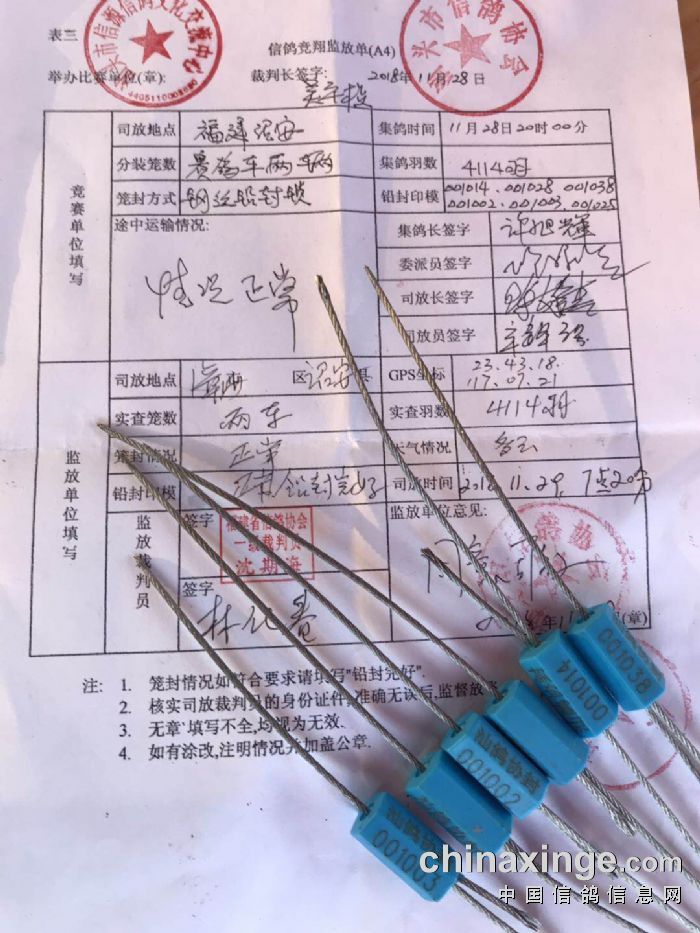 表三
信鸽竞翔监放单(A4)
举办比赛单位(章):
裁判长签字:
2018年11月28日
竞赛单位填写
司放地点 福建诏安 集鸽时间 11月28日20时00分
分装笼数 赛鸽车两车 集鸽羽数 4114羽
笼封方式 钢丝铅封锁 铅封印模 001014.001028 001038
001002.001003.001025
途中运输情况: 集鸽长签字 许旭辉
委派员签字
情况正常 司放长签字
司放员签字
监放单位填写
司放地点 区 诏安县 GPS坐标 23.43.18.
117.07.21
实查笼数 两车 实查羽数 4114羽
笼封情况 正常 天气情况 多云
铅封印模 正常铅封完好 司放时间 2018.11.29. 7点20分
监放裁判员
签字 福建省信鸽协会
一级裁判员
沈期海
监放单位意见:
签字
年11 (章)
注: 1. 笼封情况如符合要求请填写"铅封完好".
2. 核实司放裁判员的身份证件,准确无误后,监督放
3. 无章`填写不全,均视为无效.
4. 如有涂改,注明情况并加盖公章.
001038
001014
汕鸽协封
001002
汕鸽协封
001003
chinaxinge.com
中国信鸽信息网